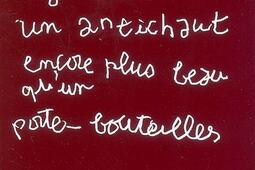 un artichaut
encore plus beau
qu'un
porte-bouteilles